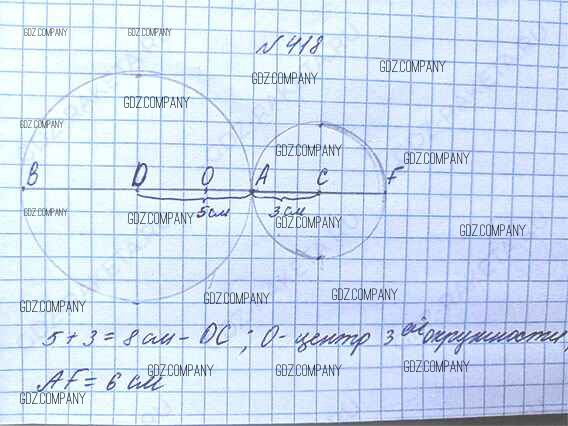 GDZ.COMPANY GDZ.COMPANY
№ 418
GDZ.COMPANY GDZ.COMPANY
GDZ.COMPANY
GDZ.COMPANY
GDZ.COMPANY GDZ.COMPANY
B D O A C F
5 см 3 см
GDZ.COMPANY GDZ.COMPANY GDZ.COMPANY GDZ.COMPANY
GDZ.COMPANY GDZ.COMPANY GDZ.COMPANY
5 + 3 = 8 см - DC ; O - центр 3 ей окружности,
GDZ.COMPANY GDZ.COMPANY GDZ.COMPANY
AF = 6 см
GDZ.COMPANY